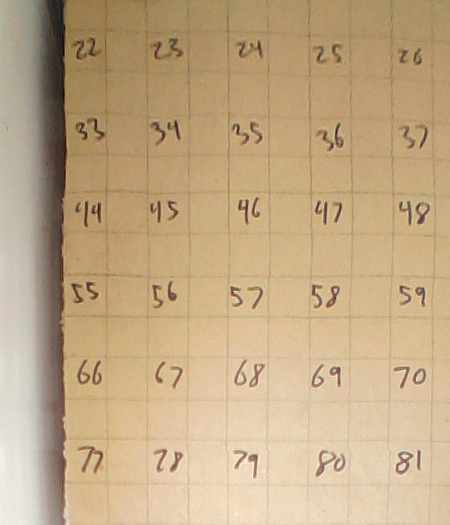 22 23 24 25 26
33 34 35 36 37
44 45 46 47 48
55 56 57 58 59
66 67 68 69 70
77 78 79 80 81